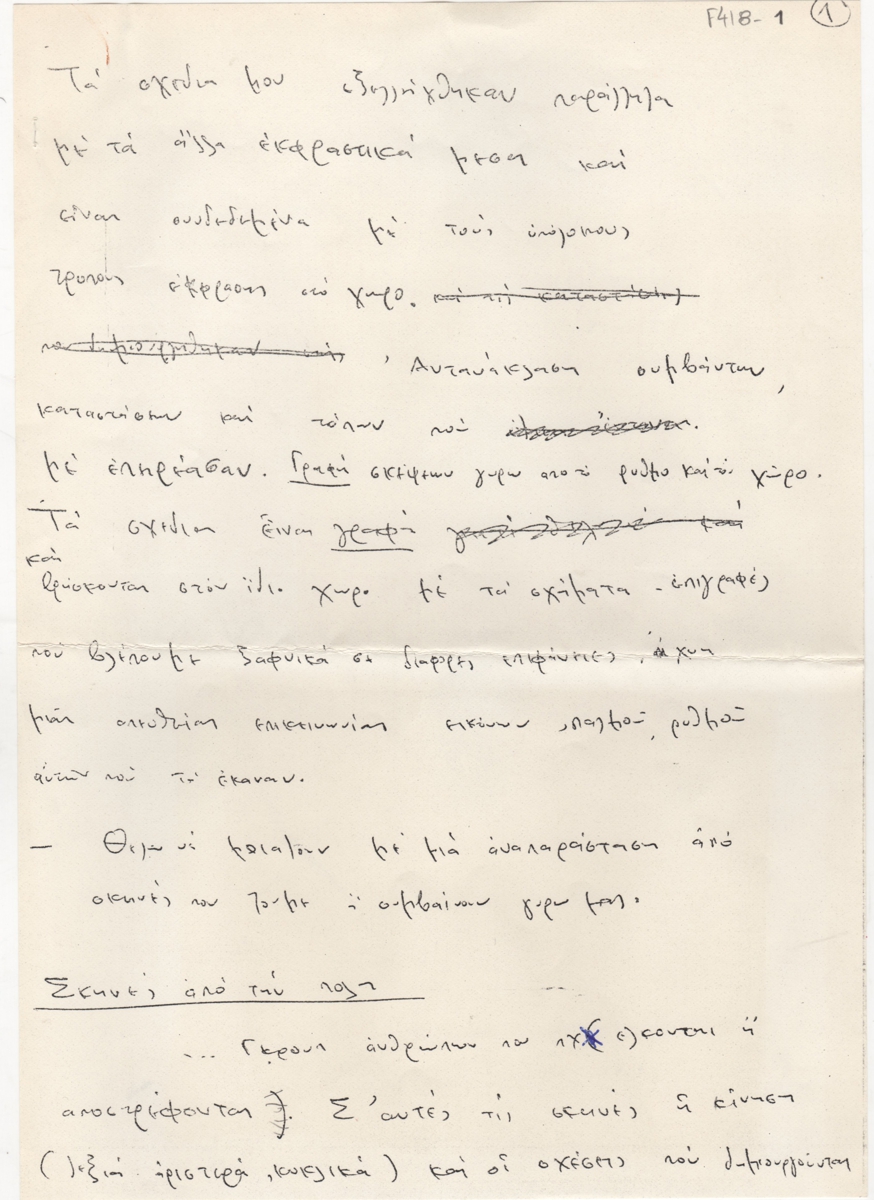 F418-1 1
Τά σχέδια μου ἐξελίχθηκαν παράλληλα
μέ τά ἄλλα ἐκφραστικά μέσα καί
εἶναι συνδεδεμένα μέ τούς ὑπόλοιπους
τρόπους ἔκφρασης στό χῶρο. καί τίς καταστάσεις
που δημιουργήθηκαν , Αντανάκλαση συμβάντων,
καταστάσεων καί τόπων πού
μέ ἐπηρέασαν. Γραφή σκέψεων γυρω από τό ρυθμο καί τό χῶρο.
Τά σχεδια εἶναι γραφή καί
καί
βρίσκονται στόν ἴδιο χωρο μέ τά σχήματα - ἐπιγραφές
πού βλέπουμε ξαφνικά σε διαφορες επιφάνειες, ἴχνη
μιᾶς απευθείας επικοινωνίας εικόνων, παλμοῦ, ρυθμοῦ
αὐτῶν πού τά έκαναν.
— Θελω νά μοιαζουν μέ μιά ἀναπαράσταση ἀπό
σκηνές που ζουμε ἤ συμβαίνουν γυρω μας.
Σκηνές ἀπό τήν πολη
... Γκρουπ ἀνθρώπων που ελκονται ἤ
αποστρέφονται. Σ' αυτές τίς σκηνές ἡ κίνηση
(δεξιά ἀριστερά, κυκλικά) καί οἱ σχέσεις πού δημιουργούνται